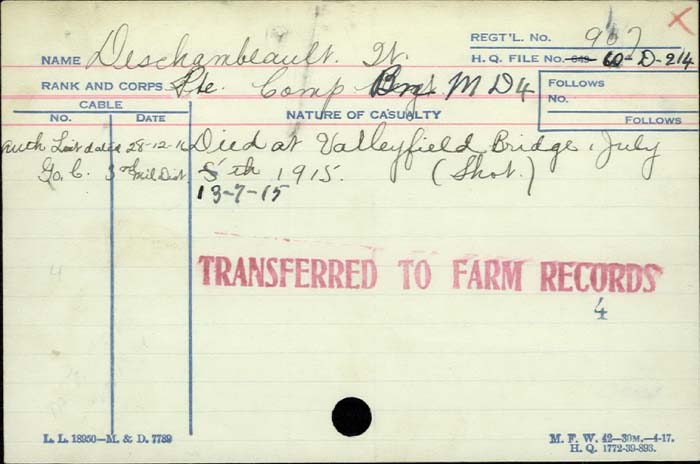 REGT'L. No. 907
NAME Deschambeault. H.
H. Q. FILE No. 649- 60-D-214
RANK AND CORPS Pte. Comp Brigt. M D4
FOLLOWS
No.
FOLLOWS
CABLE
No. DATE
NATURE OF CASUALTY
Auth List dated 28-12-16 Died at Valleyfield Bridge, July
G.O.C. 3rd Mil Dist. 5th 1915. (Shot.)
13-7-15
TRANSFERRED TO FARM RECORDS
4
L. L. 18950—M. & D. 7789
M. F. W. 42—30M.—4-17.
H. Q. 1772-39-893.